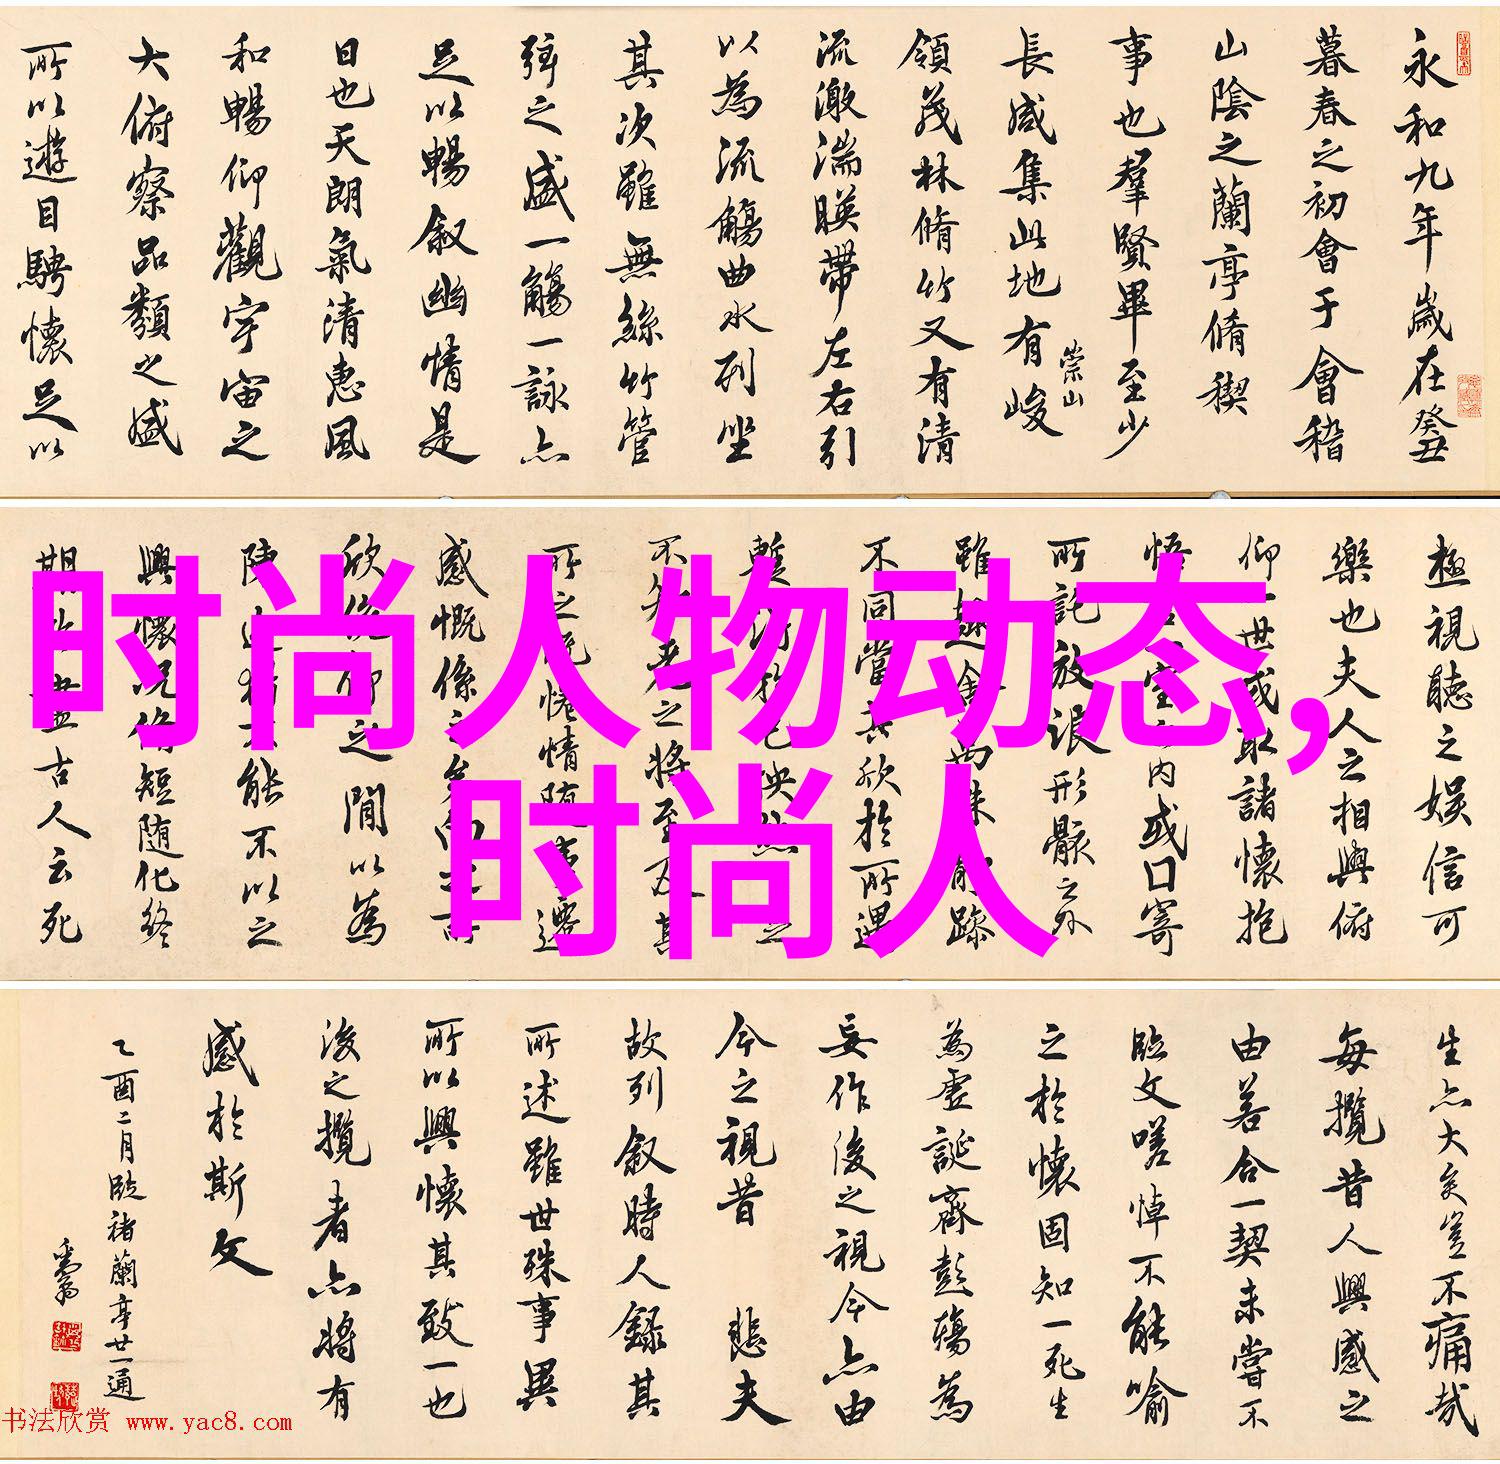 永和九年歲在癸丑
暮春之初會于會稽
山陰之蘭亭脩稧
事也羣賢畢至少
長咸集此地有峻
崇山
領茂林脩竹又有清
流激湍暎帶左右引
以為流觴曲水列坐
其次雖無絲竹管
弦之盛一觴一詠亦
足以暢叙幽情是
日也天朗氣清惠風
和暢仰觀宇宙之
大俯察品類之盛
所以遊目騁懷足以
極視聽之娛信可
樂也夫人之相與俯
仰一世或取諸懷抱
悟言一室之内或因寄
所託放浪形骸之外
雖趣舍萬殊靜躁
不同當其欣於所遇
暫得於己快然之
不知老之將至及其
所之既惓情随事遷
感慨係之矣向之所
欣俛仰之間以為
陳迹猶不能不以之
興懷况脩短随化終
期於盡古人云死
时尚人物动态,
时尚人
生亦大矣豈不痛哉
每攬昔人興感之
由若合一契未嘗不
臨文嗟悼不能喻
之於懷固知一死生
為虛誕齊彭殤為
妄作後之視今亦由
今之視昔 悲夫
故列叙時人錄其
所述雖世殊事異
所以興懷其致一也
後之攬者亦將有
感於斯文
乙酉二月臨褚蘭亭廿一通
书法欣赏 www.yac8.com